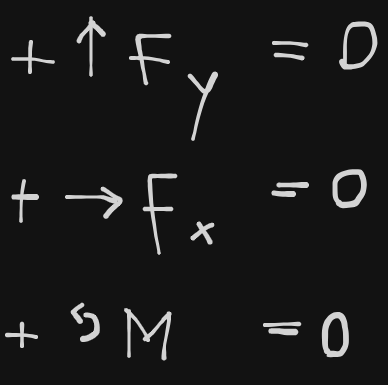 + ↑ Fy = 0
+ → Fx = 0
+ ↺ M = 0